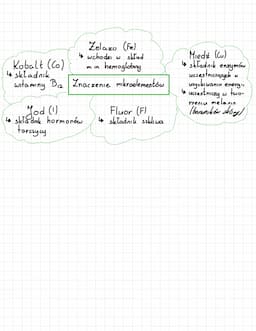 Żelazo (Fe)
↳ wchodzi w skład
m.in. hemoglobiny
Kobalt (Co)
↳ składnik
witaminy B12
Miedź (Cu)
↳ składnik enzymów
uczestniczących w
wytwarzaniu energii
↳ uczestniczy w two-
rzeniu melanin
(barwników skóry)
Znaczenie mikroelementów
Jod (I)
↳ składnik hormonów
tarczycy
Fluor (F)
↳ składnik szkliwa